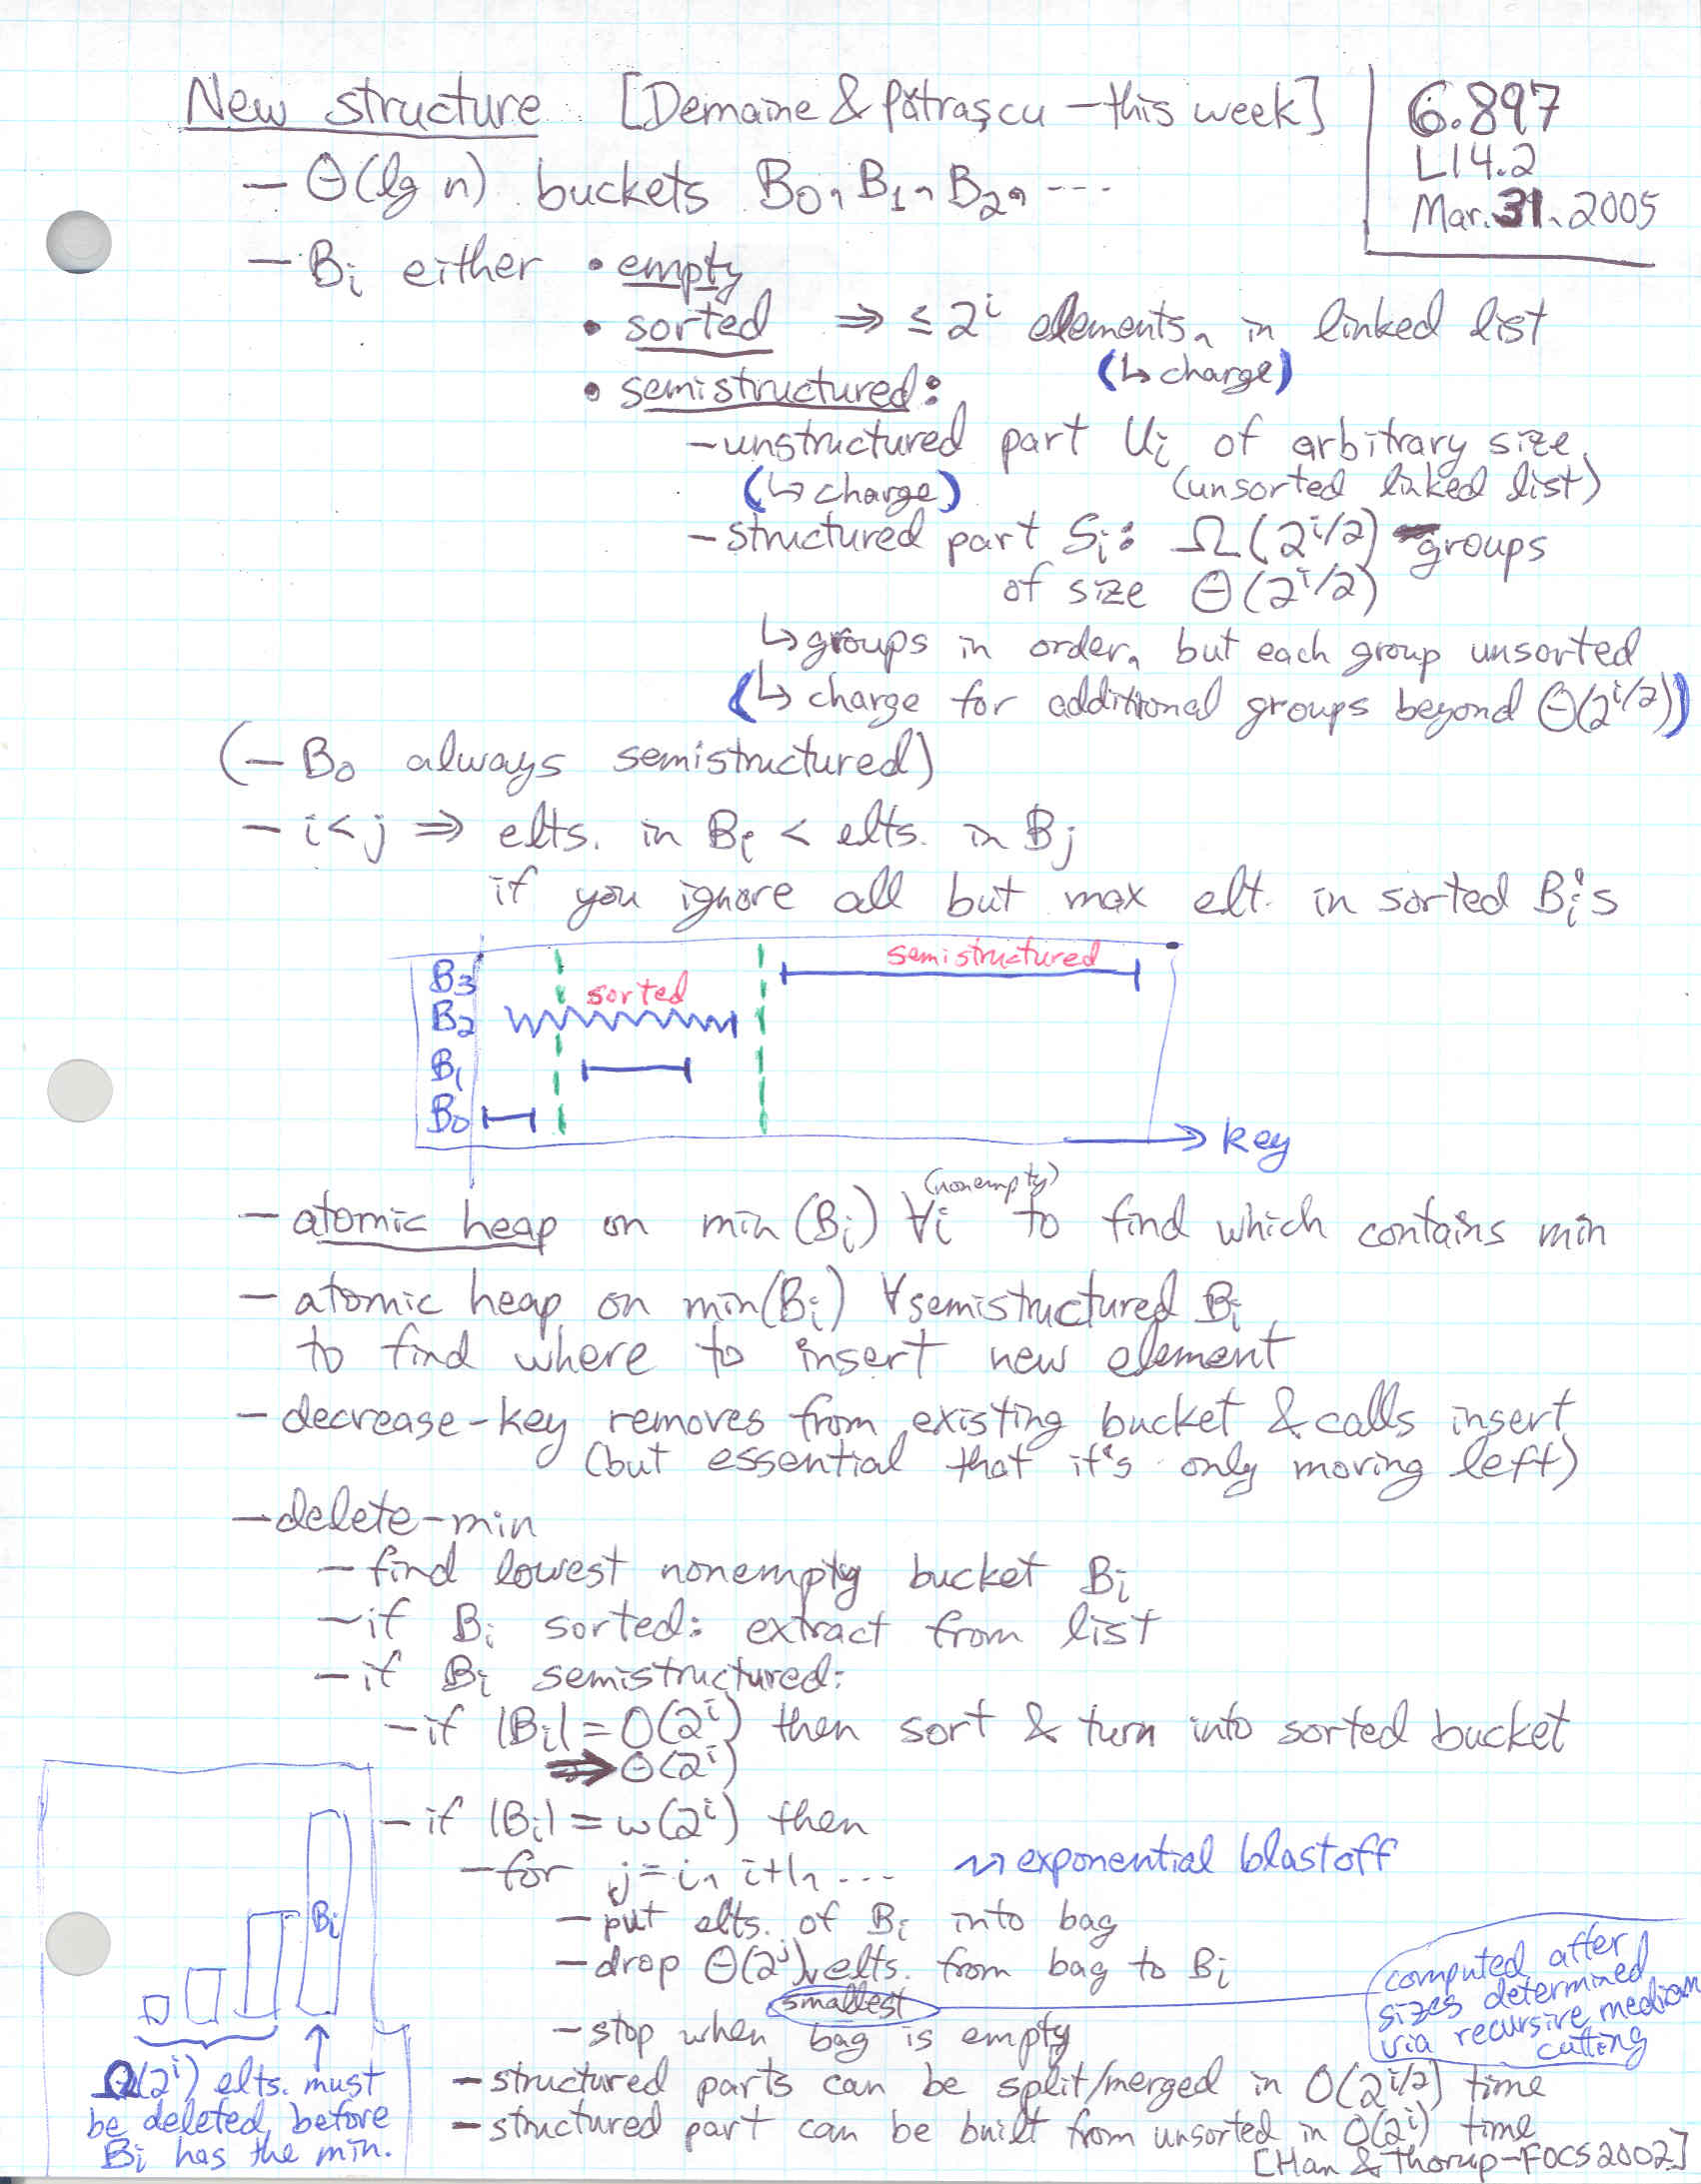 New structure [Demaine & Pătraşcu – this week]
6.897
L14.2
Mar. 31, 2005
– Θ(lg n) buckets B₀, B₁, B₂, ...
– Bᵢ either • empty
• sorted ⇒ ≤ 2ⁱ elements, in linked list
(↳ charge)
• semistructured:
– unstructured part Uᵢ of arbitrary size
(↳ charge) (unsorted linked list)
– structured part Sᵢ: Ω(2^{i/2}) groups
of size Θ(2^{i/2})
↳ groups in order, but each group unsorted
(↳ charge for additional groups beyond Θ(2^{i/2}))
(– B₀ always semistructured)
– i < j ⇒ elts. in Bᵢ < elts. in Bⱼ
if you ignore all but max elt. in sorted Bᵢ's
B₃ semistructured
B₂ sorted
B₁
B₀
→ key
(nonempty)
– atomic heap on min(Bᵢ) ∀i to find which contains min
– atomic heap on min(Bᵢ) ∀ semistructured Bᵢ
to find where to insert new element
– decrease-key removes from existing bucket & calls insert
(but essential that it's only moving left)
– delete-min
– find lowest nonempty bucket Bᵢ
– if Bᵢ sorted: extract from list
– if Bᵢ semistructured:
– if |Bᵢ| = O(2ⁱ) then sort & turn into sorted bucket
⇒ Θ(2ⁱ)
– if |Bᵢ| = ω(2ⁱ) then
– for j = i, i+1, ... ⤳ exponential blastoff
– put elts. of Bᵢ into bag
– drop Θ(2ʲ) elts. from bag to Bᵢ
smallest
computed after
sizes determined
via recursive median
cutting
– stop when bag is empty
Bᵢ
Ω(2ⁱ) elts. must
be deleted before
Bᵢ has the min.
– structured parts can be split/merged in O(2^{i/2}) time
– structured part can be built from unsorted in O(2ⁱ) time
[Han & Thorup – FOCS 2002]